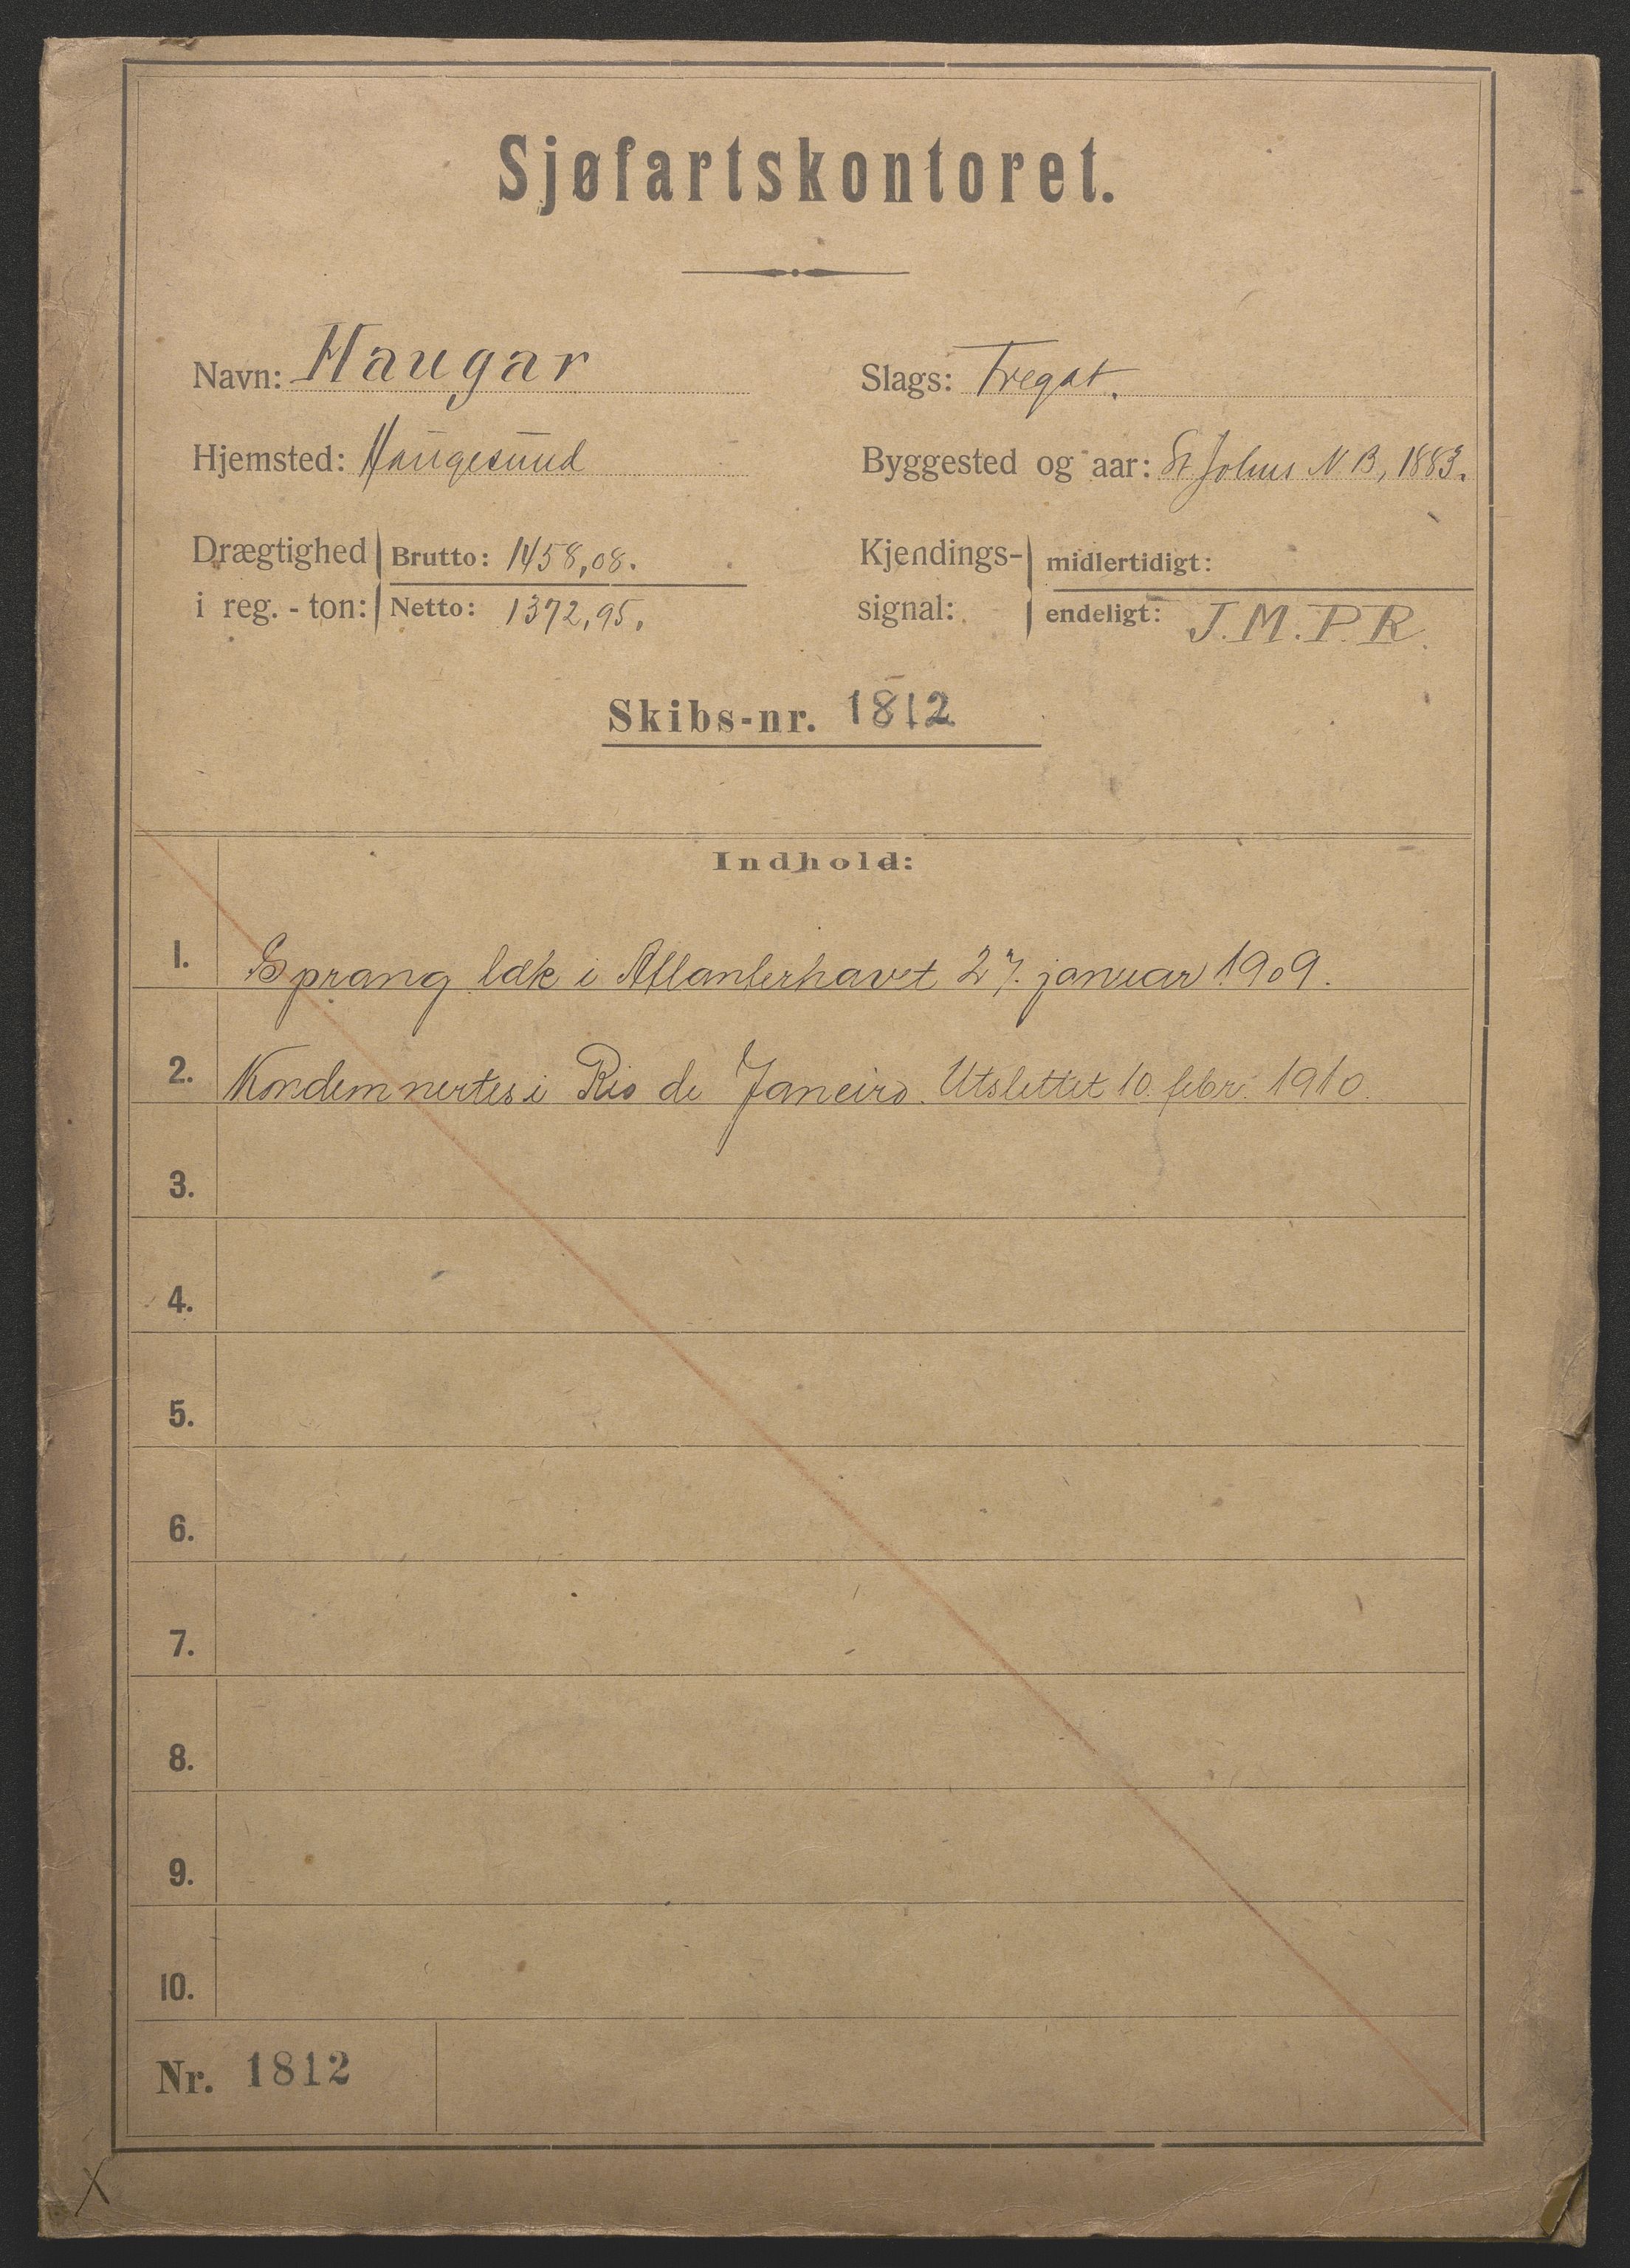 Sjøfartskontoret.
Navn: Haugar
Slags: Fregat.
Hjemsted: Haugesund
Byggested og aar: St Johns N.B, 1883.
Drægtighed i reg.-ton: Brutto: 1458,08.
Netto: 1372,95.
Kjendings-signal: midlertidigt:
endeligt: J.M.P.R.
Skibs-nr. 1812
Indhold:
1. Sprang læk i Atlanterhavet 27. januar 1909.
2. Kondemnertes i Rio de Janeiro. Utslettet 10. febr. 1910.
3.
4.
5.
6.
7.
8.
9.
10.
Nr. 1812
X